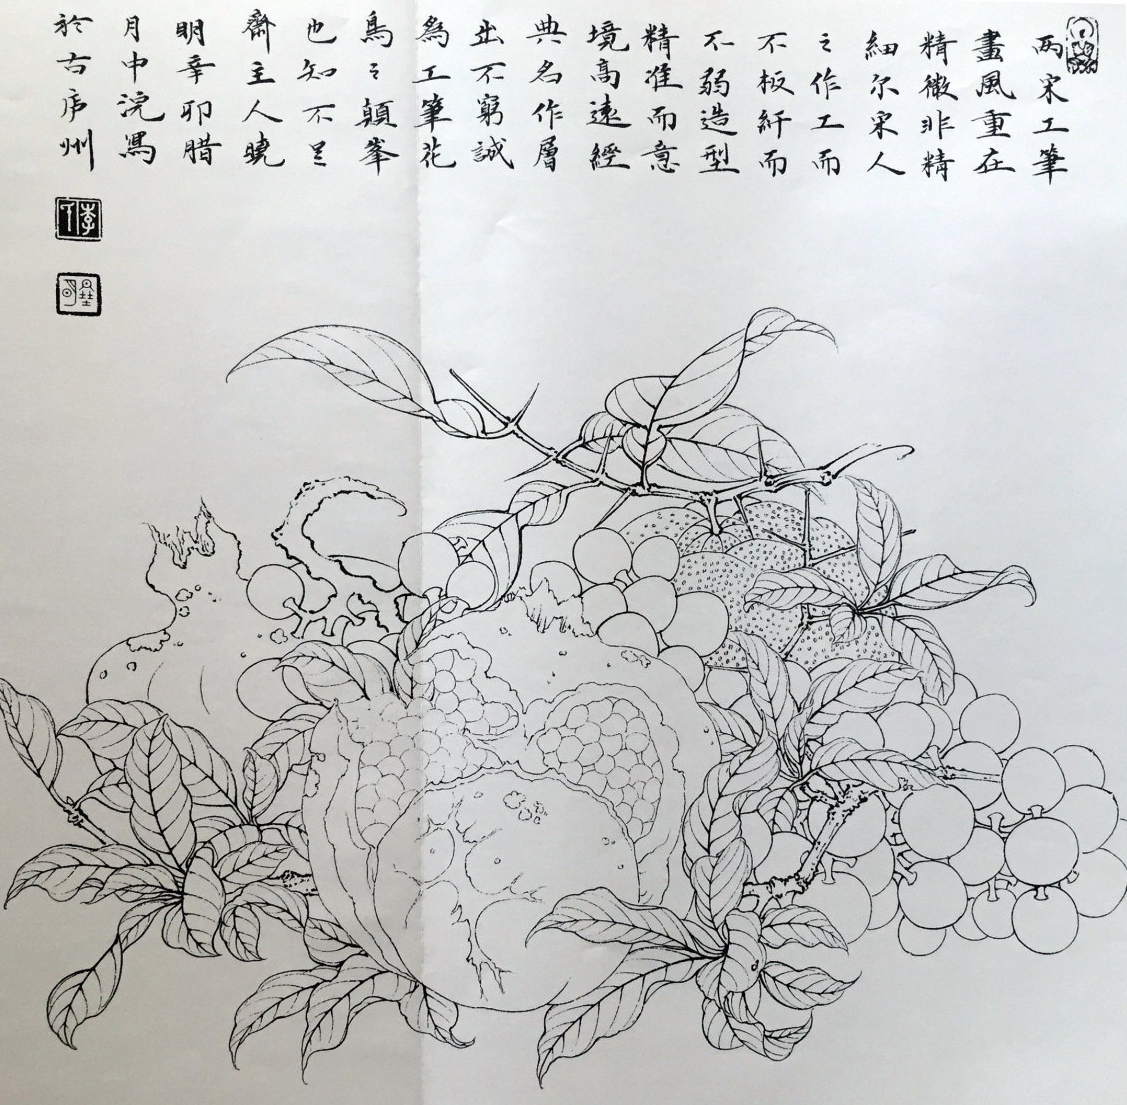 两宋工筆
畫風重在
精微非精
細尔宋人
之作工而
不板紆而
不弱造型
精准而意
境高遠經
典名作層
出不窮誠
為工筆花
鳥之顛峯
也知不足
齋主人曉
明辛卯腊
月中浣寫
於古庐州